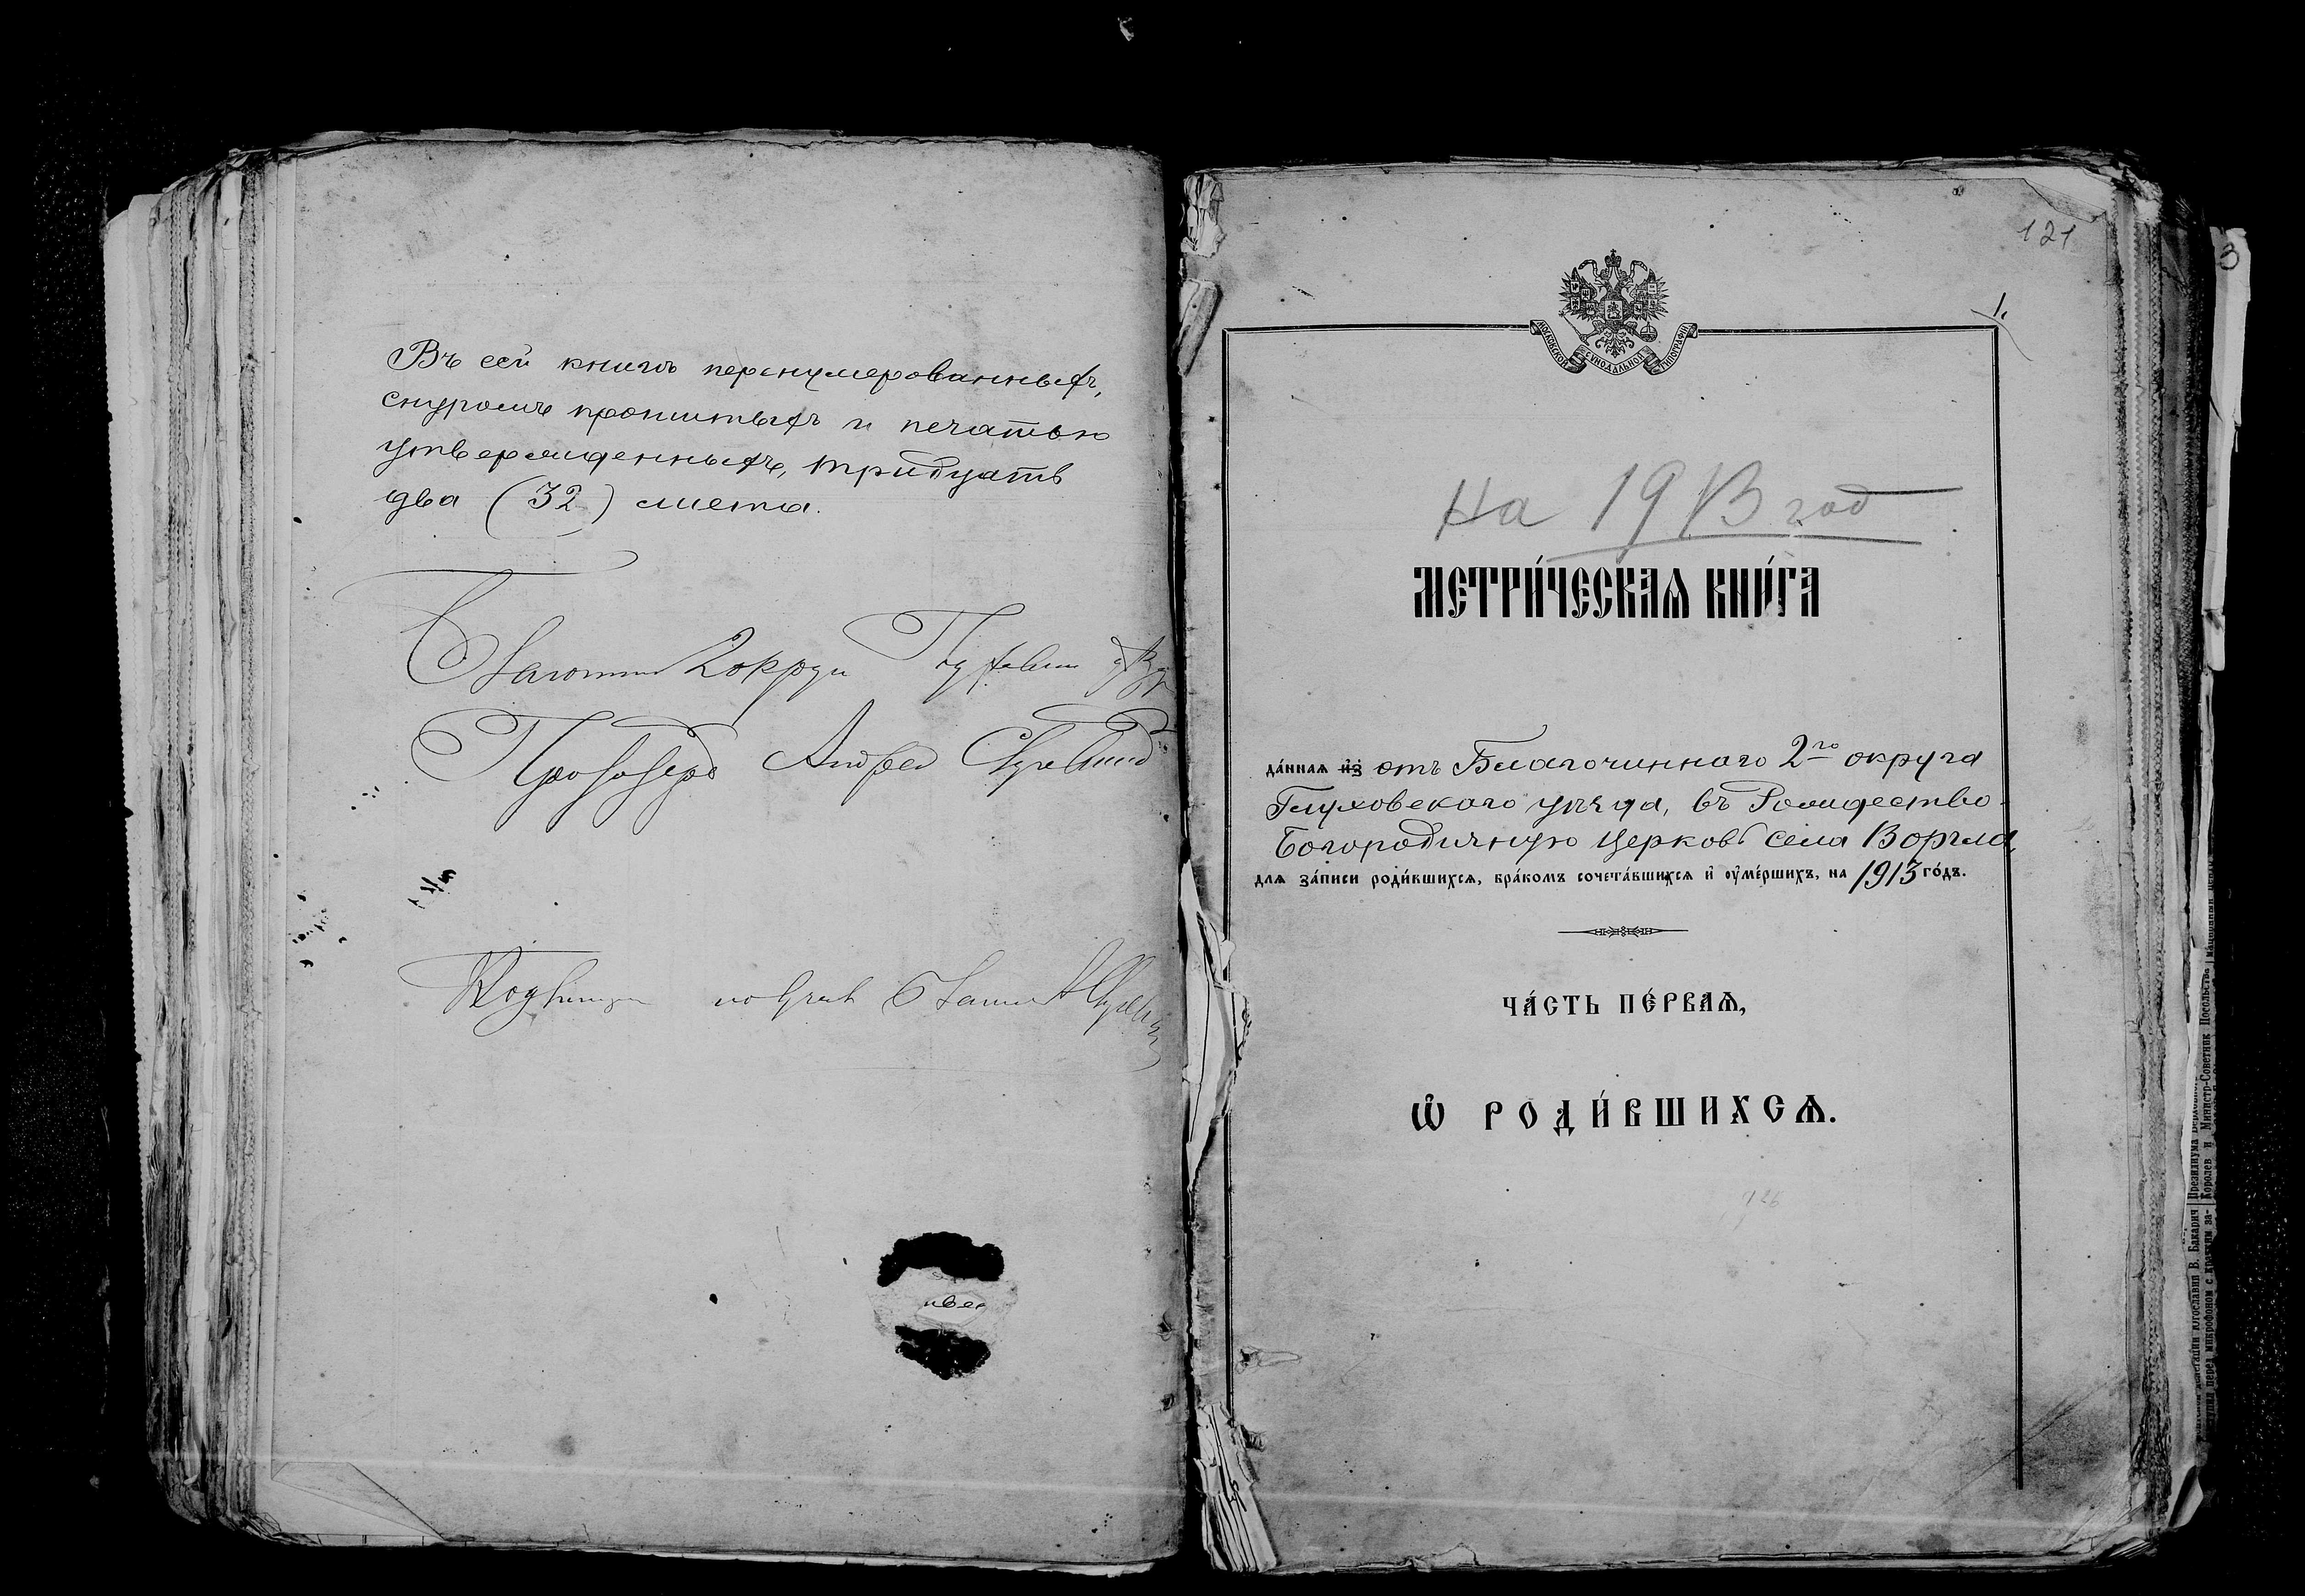 Въ сей книгѣ перенумерованныхъ,
снуромъ прошитыхъ и печатью
утвержденныхъ, тридцать
два (32) листа.
Благочин 2 округа
Протоіерей Андрей
121
3
1.
МОСКОВСКОЙ СѴНОДАЛЬНОЙ ТИПОГРАФІИ
На 1913 год
МЕТРИ́ЧЕСКАѦ КНИ́ГА
да́ннаѧ из̾ отъ Благочиннаго 2го округа
Глуховскаго уѣзда, въ Рождество-
Богородичную церковь села Воргла,
длѧ за́писи роди́вшихсѧ, бра́комъ сочета́вшихсѧ и҆ ᲂу҆ме́ршихъ, на 1913 го́дъ.
ЧА́СТЬ ПЕ́РВАѦ,
Ѽ РОДИ́ВШИХСѦ.